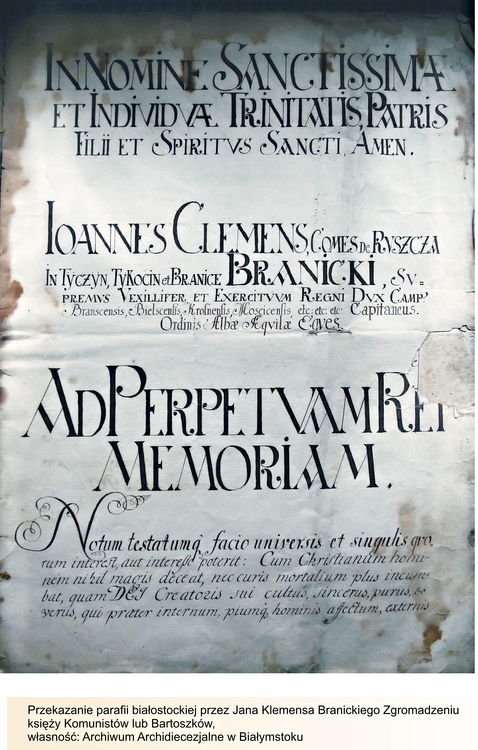 IN NOMINE SANCTISSIMÆ
ET INDIVIDVÆ TRINITATIS, PATRIS
FILII ET SPIRITVS SANCTI, AMEN.
IOANNES CLEMENS, COMES de RVSZCZA
IN TYCZYN, TYKOCIN et BRANICE BRANICKI, SV=
PREMVS VEXILLIFER, ET EXERCITVVM REGNI DVX CAMP,
Branscensis, Bielscensis, Krosnensis, Moscicensis, etc: etc: etc: Capitaneus.
Ordinis Albæ Aqvilæ Eqves
AD PERPETVAM REI
MEMORIAM.
Notum testatumq facio universis et singulis qvo,
rum interest, aut interesse poterit: Cum Christianum homi-
nem nihil magis deceat, nec curis mortalium plus incum-
bat, quam DEI Creatoris sui cultus, sincerus, purus, &
verus, qui præter internum, piumq hominis affectum, externis
Przekazanie parafii białostockiej przez Jana Klemensa Branickiego Zgromadzeniu
księży Komunistów lub Bartoszków,
własność: Archiwum Archidiecezjalne w Białymstoku